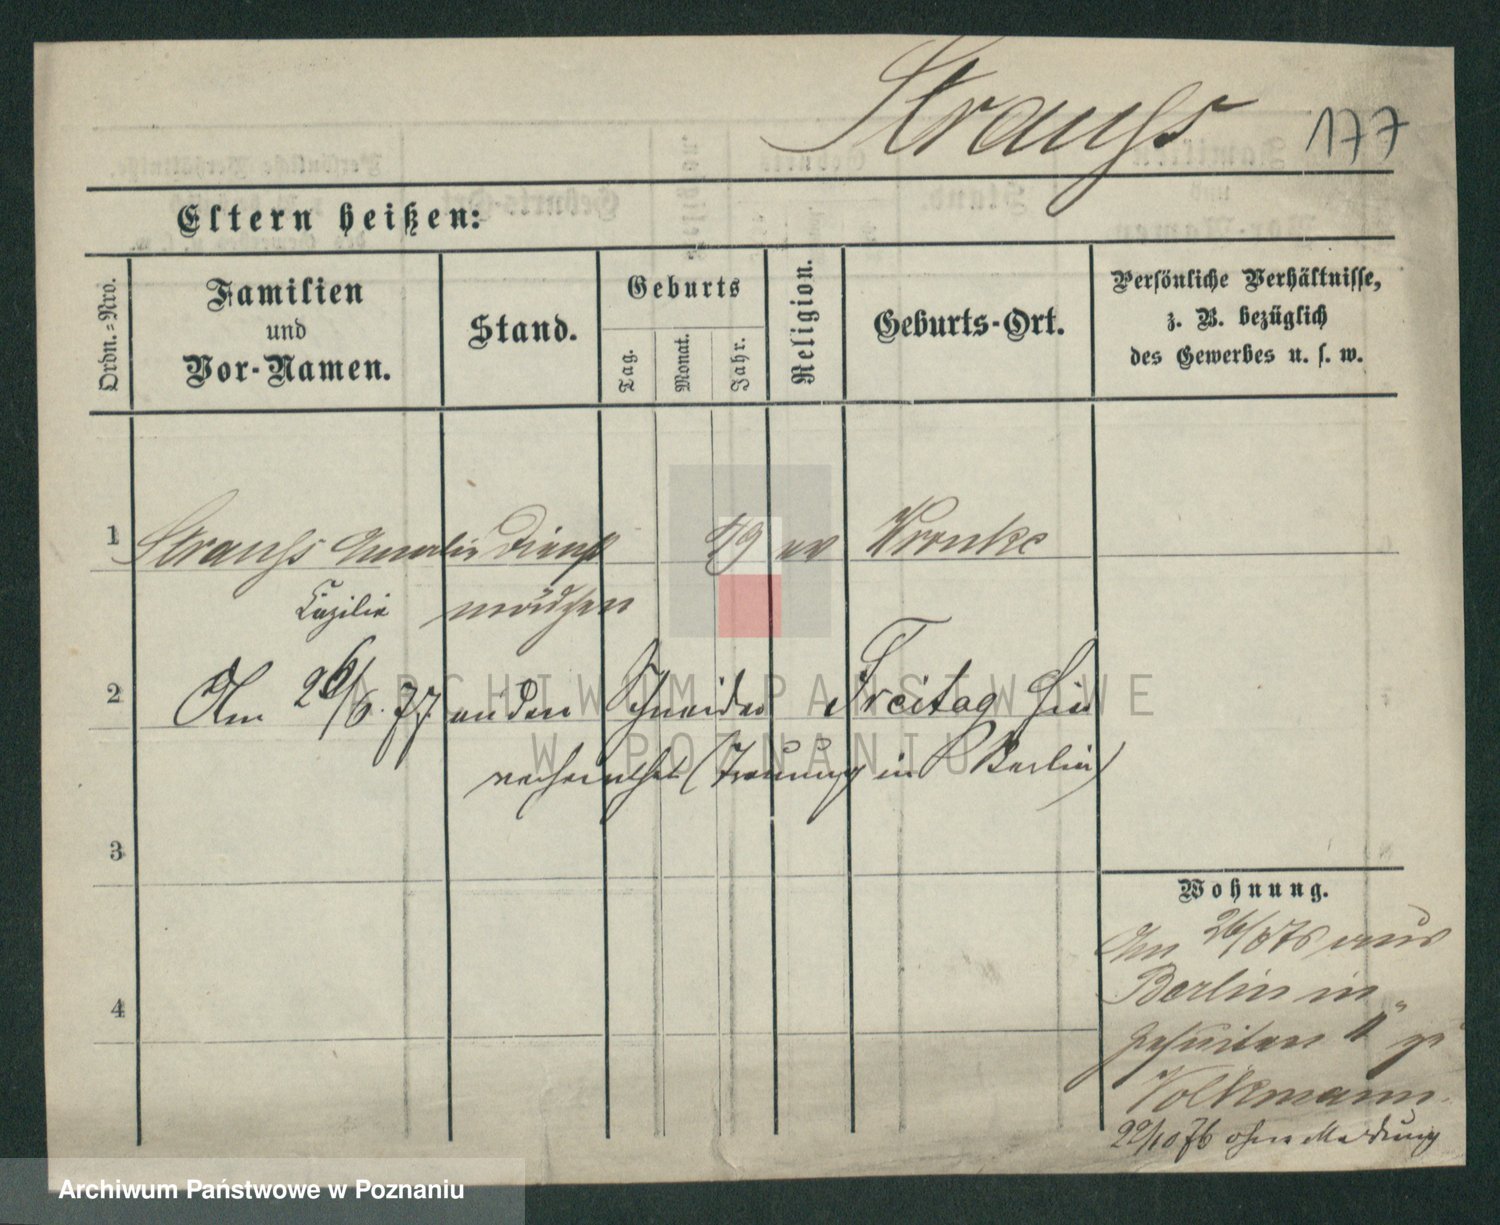 Strauss 177
Eltern heißen:
Ordn.=Nro.
Familien
und
Vor-Namen.
Stand.
Geburts
Tag.
Monat.
Jahr.
Religion.
Geburts-Ort.
Persönliche Verhältnisse,
z. B. bezüglich
des Gewerbes u. s. w.
1 Strauss Amalie Dienst 49 ev Wronke
Cäzilie mädchen
2 Am 26/6. 77 an den Schneider Freitag hier
verheirathet (Trauung in Berlin)
3
4
Wohnung.
Am 26/8 76 aus
Berlin in
Jesuiten 11 zu
Volkmann.
22/10 76 ohne Meldung
ARCHIWUM PAŃSTWOWE
W POZNANIU
Archiwum Państwowe w Poznaniu